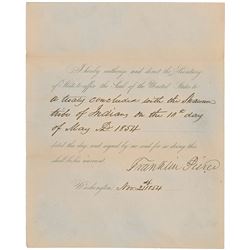 I hereby authorize and direct the Secretary
of State to affix the Seal of the United States to
a treaty concluded with the Shawnee
tribe of Indians on the 10th day
of May 1854
dated this day, and signed by me and for so doing this
shall be his warrant.
Franklin Pierce
Washington, Nov. 2 1854